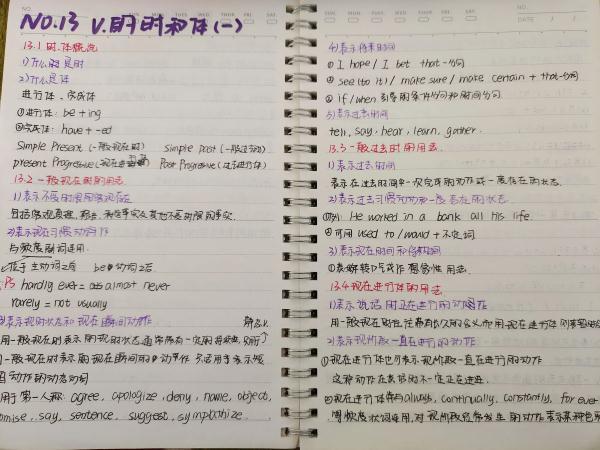 NO.13 V.的时和体(一)
13.1 时.体概况
1)什么是时
2)什么是体
进行体、完成体
①进行体: be + ing
②完成体: have + -ed
Simple Present (一般现在时) Simple past (一般过去时)
present Progressive (现在进行体) Past Progressive (过去进行体)
13.2 一般现在时的用法
1)表示不受时限的客观存在
包括客观真理、格言、科学事实及其他不受时限的事实.
2)表示现在习惯动作
与频度副词连用.
位于主动词之后 be动词之后.
PS hardly ever = almost never
rarely = not usually
3)表示现时状态和现在瞬间动作
用一般现在时表示的现时状态通常有一定的持续性
一般现在时表示的现在瞬间的动作
动作的动态动词
用于第一人称: agree, apologize, deny, name, object,
promise, say, sentence, suggest, sympathize.
NO.
DATE / /
4)表示将来时间
① I hope / I bet that-分句
② see (to it) / make sure / make certain + that-分句
③ if/when 引导的条件分句和时间分句
5)表示过去时间
tell, say, hear, learn, gather.
13.3 一般过去时的用法.
1)表示过去时间
表示在过去时间中一次完成的动作或一度存在的状态.
2)表示过去习惯动作和一度存在的状态.
①例: He worked in a bank all his life.
②可用 used to / would + 不定词
3)表示现在时间和将来时间
①表婉转口气或作想象性用法.
13.4 现在进行体的用法.
1)表示说话时正在进行的动作
2)表示现阶段一直在进行的动作
①现在进行体也可表示现阶段一直在进行的动作
这种动作在说话时不一定正在进行.
②现在进行体常与always, continually, constantly, for ever
等频度状语连用,对现阶段经常发生的动作表示某种色彩